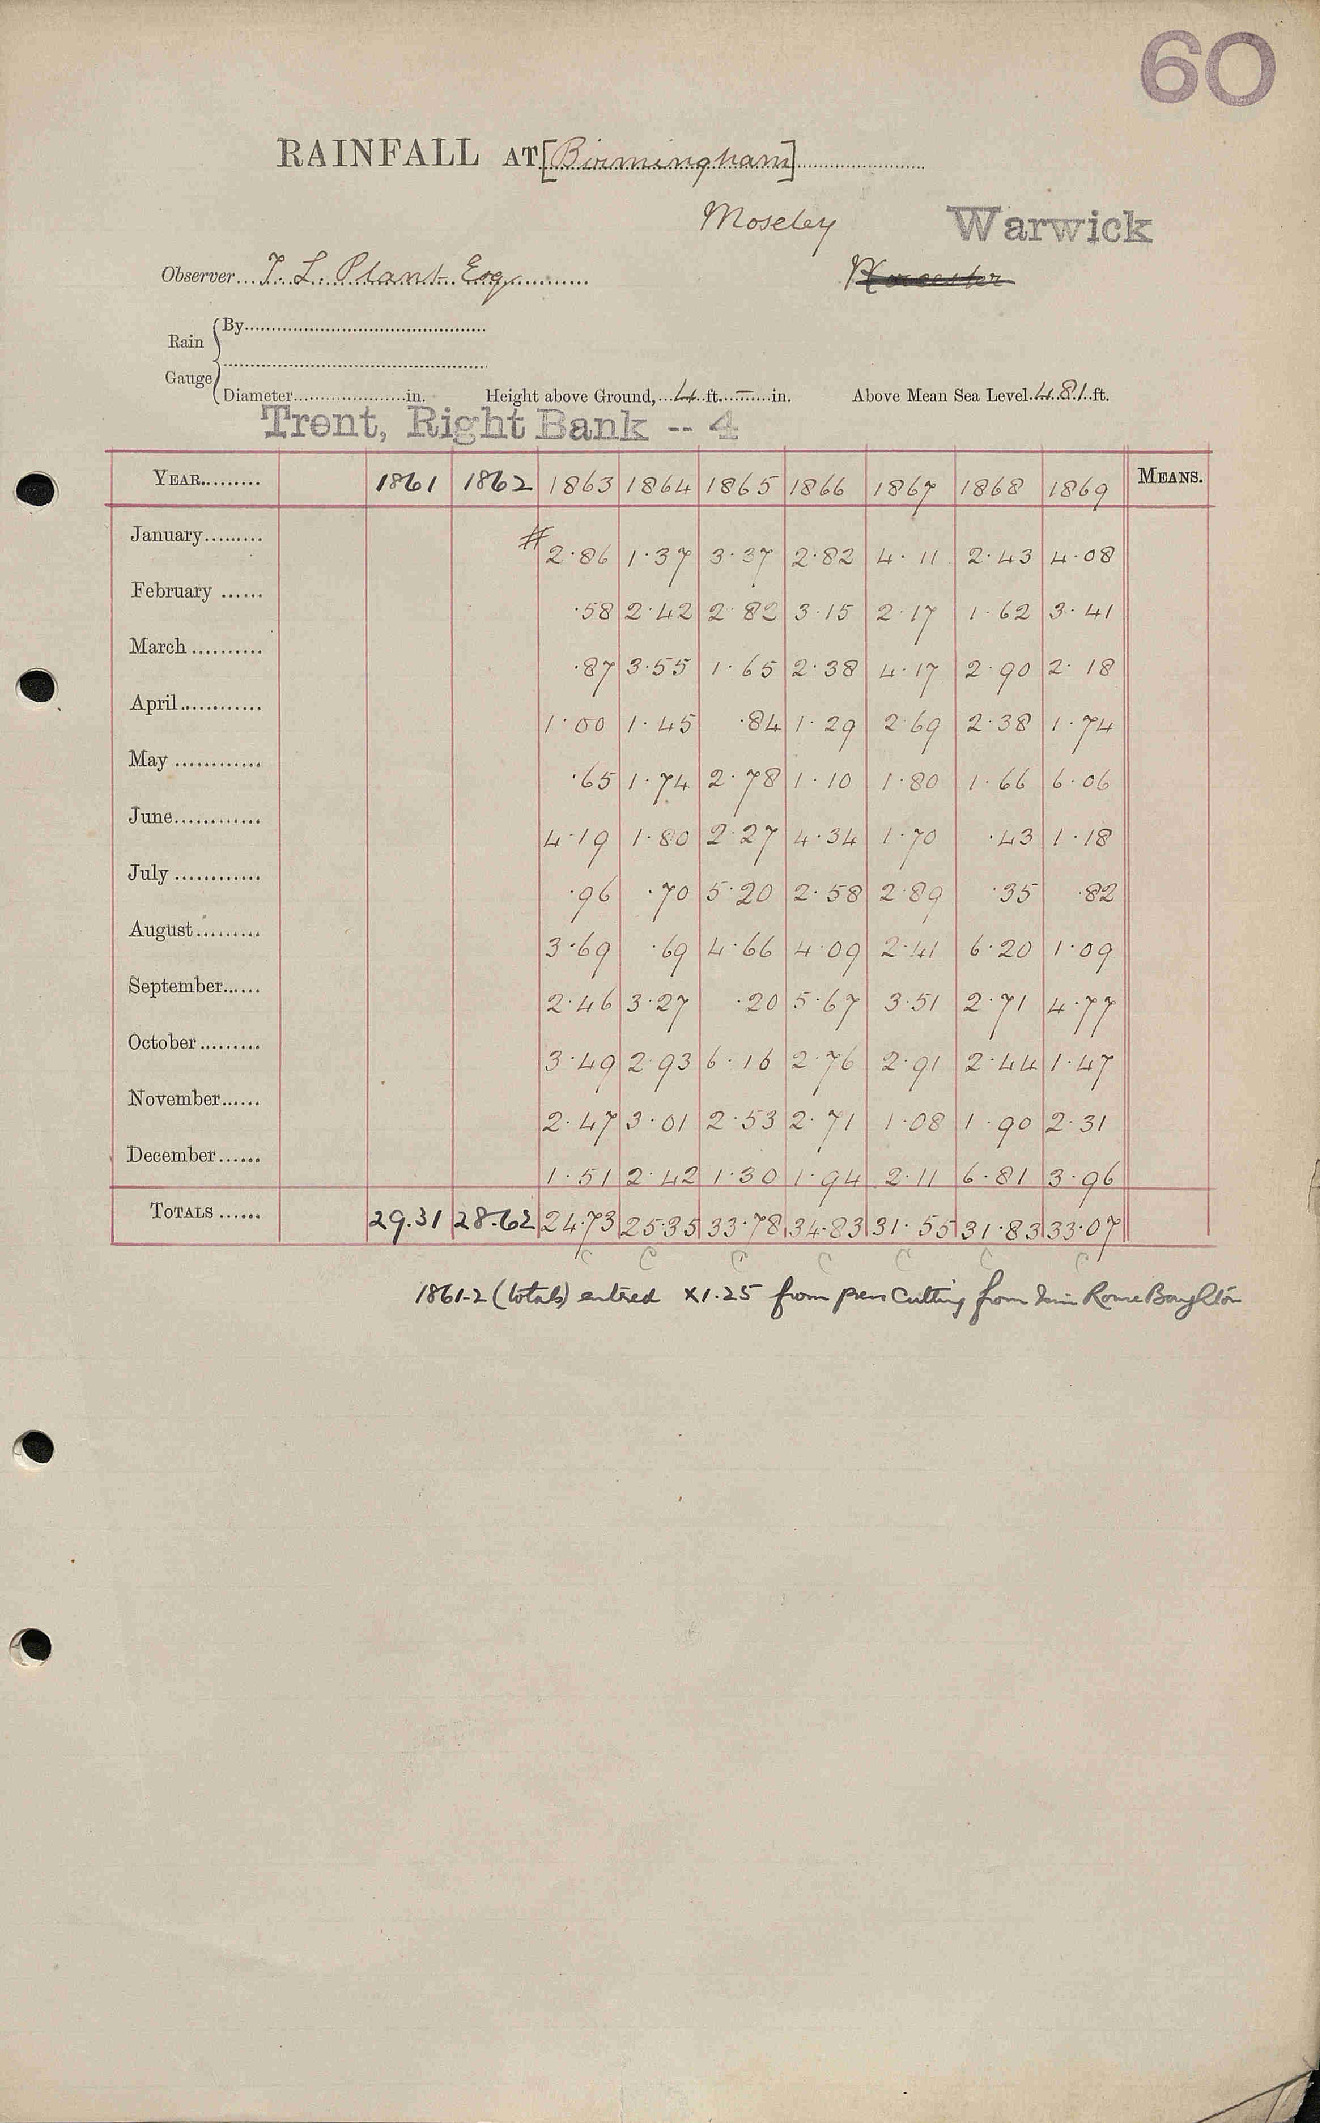 60
RAINFALL AT [Birmingham]
Moseley Warwick
Observer... T. L. Plant Esq. Worcester
Rain Gauge { By
Diameter in. Height above Ground, 4 ft. - in. Above Mean Sea Level 481 ft.
Trent, Right Bank -- 4
YEAR 1861 1862 1863 1864 1865 1866 1867 1868 1869 MEANS.
January # 2.86 1.37 3.37 2.82 4.11 2.43 4.08
February .58 2.42 2.82 3.15 2.17 1.62 3.41
March .87 3.55 1.65 2.38 4.17 2.90 2.18
April 1.00 1.45 .84 1.29 2.69 2.38 1.74
May .65 1.74 2.78 1.10 1.80 1.66 6.06
June 4.19 1.80 2.27 4.34 1.70 .43 1.18
July .96 .70 5.20 2.58 2.89 .35 .82
August 3.69 .69 4.66 4.09 2.41 6.20 1.09
September 2.46 3.27 .20 5.67 3.51 2.71 4.77
October 3.49 2.93 6.16 2.76 2.91 2.44 1.47
November 2.47 3.01 2.53 2.71 1.08 1.90 2.31
December 1.51 2.42 1.30 1.94 2.11 6.81 3.96
TOTALS 29.31 28.62 24.73 25.35 33.78 34.83 31.55 31.83 33.07
C C C C C C C
1861-2 (totals) entred x1.25 from press cutting from